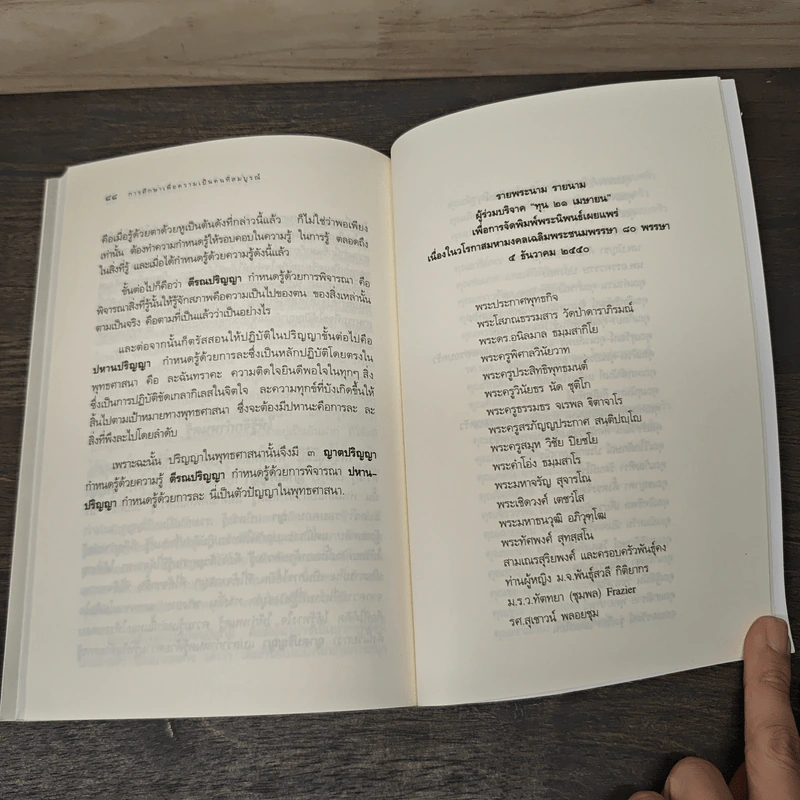 ๔๔ การศึกษาเพื่อความเป็นคนที่สมบูรณ์
คือเมื่อรู้ด้วยตาด้วยหูเป็นต้นดังที่กล่าวนี้แล้ว ก็ไม่ใช่ว่าพอเพียง
เท่านั้น ต้องทำความกำหนดรู้ให้รอบคอบในความรู้ ในการรู้ ตลอดถึง
ในสิ่งที่รู้ และเมื่อได้กำหนดรู้ด้วยความรู้ดังนี้แล้ว
ขั้นต่อไปก็คือว่า ตีรณปริญญา กำหนดรู้ด้วยการพิจารณา คือ
พิจารณาสิ่งที่รู้นั้นให้รู้จักสภาพคือความเป็นไปของตน ของสิ่งเหล่านั้น
ตามเป็นจริง คือตามที่เป็นแล้วว่าเป็นอย่างไร
และต่อจากนั้นก็ตรัสสอนให้ปฏิบัติในปริญญาขั้นต่อไปคือ
ปหานปริญญา กำหนดรู้ด้วยการละซึ่งเป็นหลักปฏิบัติโดยตรงใน
พุทธศาสนา คือ ละฉันทราคะ ความติดใจยินดีพอใจในทุกๆ สิ่ง
ซึ่งเป็นการปฏิบัติขัดเกลากิเลสในจิตใจ ละความทุกข์ที่บังเกิดขึ้นให้
สิ้นไปตามเป้าหมายทางพุทธศาสนา ซึ่งจะต้องมีปหานะคือการละ ละ
สิ่งที่พึงละไปโดยลำดับ
เพราะฉะนั้น ปริญญาในพุทธศาสนานั้นจึงมี ๓ ญาตปริญญา
กำหนดรู้ด้วยความรู้ ตีรณปริญญา กำหนดรู้ด้วยการพิจารณา ปหาน-
ปริญญา กำหนดรู้ด้วยการละ นี่เป็นตัวปัญญาในพุทธศาสนา.
รายพระนาม รายนาม
ผู้ร่วมบริจาค "ทุน ๒๑ เมษายน"
เพื่อการจัดพิมพ์พระนิพนธ์เผยแพร่
เนื่องในวโรกาสมหามงคลเฉลิมพระชนมพรรษา ๘๐ พรรษา
๕ ธันวาคม ๒๕๕๐
พระประกาศพุทธกิจ
พระโสภณธรรมสาร วัดป่าดาราภิรมณ์
พระดร.อนิลมาล ธมฺมสากิโย
พระครูพิศาลวินัยวาท
พระครูประสิทธิพุทธมนต์
พระครูวินัยธร นัด ชุติโก
พระครูธรรมธร จเรพล ฐิตาจาโร
พระครูสรภัญญประกาศ สนฺติปญฺโญ
พระครูสมุห วิชัย ปิยชโย
พระคำโอ่ง ธมฺมสาโร
พระมหาจรัญ สุจารโณ
พระเชิดวงศ์ เตชวํโส
พระมหาธนวุฒิ อภิวุฑฺโฒ
พระทัศพงศ์ สุทสฺสโน
สามเณรสุริยพงศ์ และครอบครัวพันธุ์คง
ท่านผู้หญิง ม.จ.พันธุ์สวลี กิติยากร
ม.ร.ว.ทัตทยา (ชุมพล) Frazier
รศ.สุเชาวน์ พลอยชุม